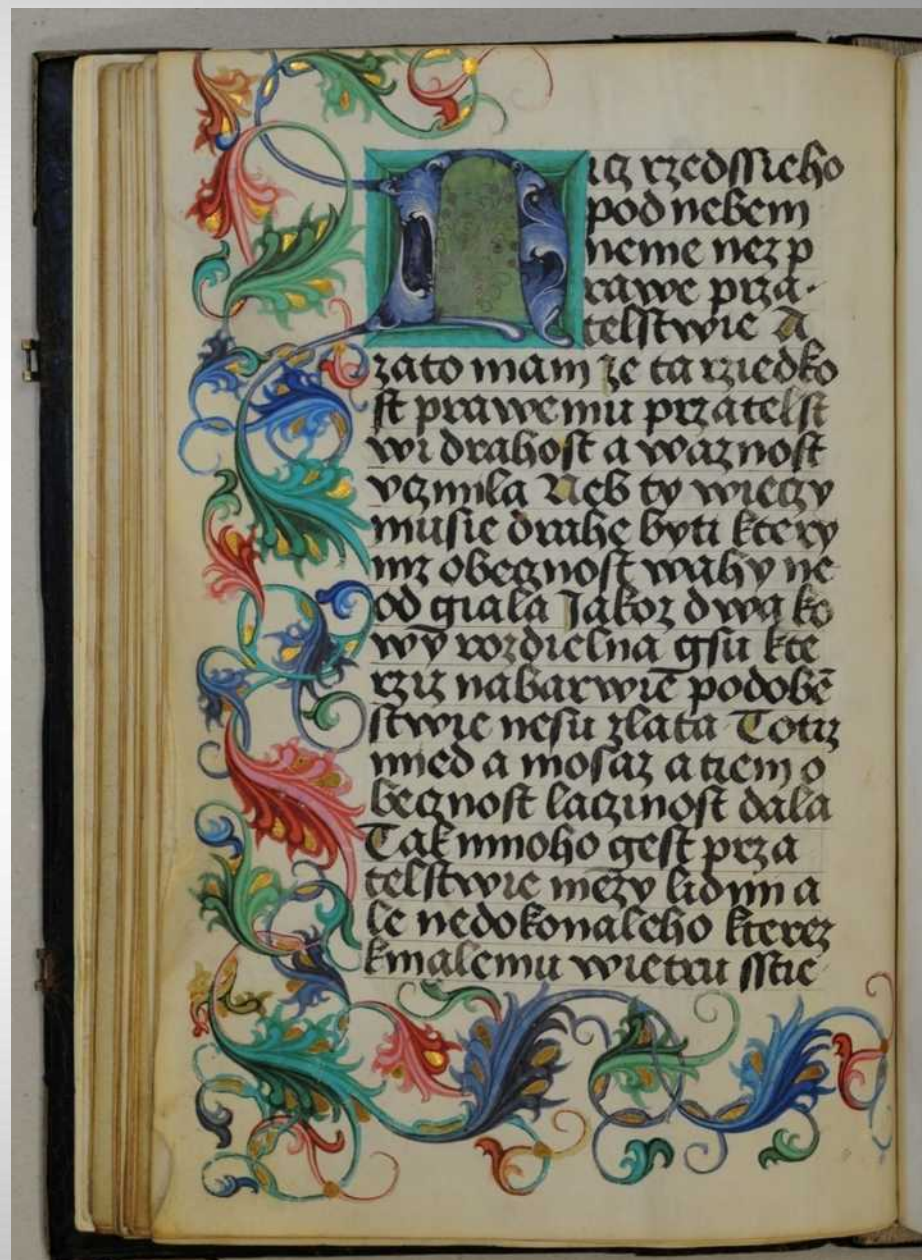 Nicz rzedssieho
pod nebem
neme nez p
rawe prza-
telstwie A
zato mam ze ta rziedko
st prawemu przatelst
wi drahost a waznost
vczinila Neb ty wieczy
musie drahe byti ktery
mz obecznost wahy ne
od giala Jakoz dwa ko
wy rozdielna gsu kte
rziz nabarwie podobē
stwie nesu zlata Totiz
mied a mosaz a tiem o
becznost lacinost dala
Tak mnoho gest prza
telstwie mezy lidmi a
le nedokonaleho kterez
kmalemu wietru sstie